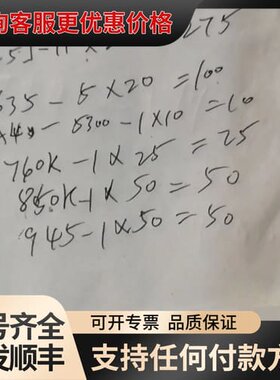 询客服更优惠价格
275
535 - 5 × 20 = 100
5300 - 1 × 10 = 10
760K - 1 × 25 = 25
850K - 1 × 50 = 50
945 - 1 × 50 = 50
号齐全
可开专票 品质保证
发顺丰
支持任何付款方